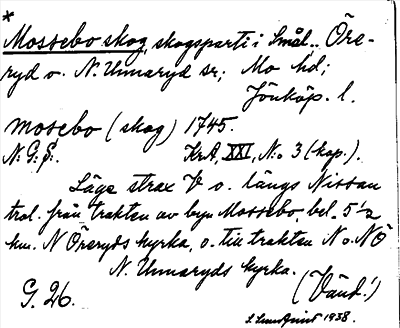 *
Mossebo skog, skogsparti i Smål., Öre-
ryd o. N. Unnaryd sr; Mo hd;
Jönköp. l.
Mosebo (skog) 1745.
N:G:S:. KrA, XXI, N:o 3 (kop.).
Läge strax V o. längs Nissan
trol. från trakten av byn Mossebo, bel. 5 1/2
km. N Öreryds kyrka, o. till trakten N o. NÖ
N. Unnaryds kyrka.
G. 26. (Vänd!)
1938.